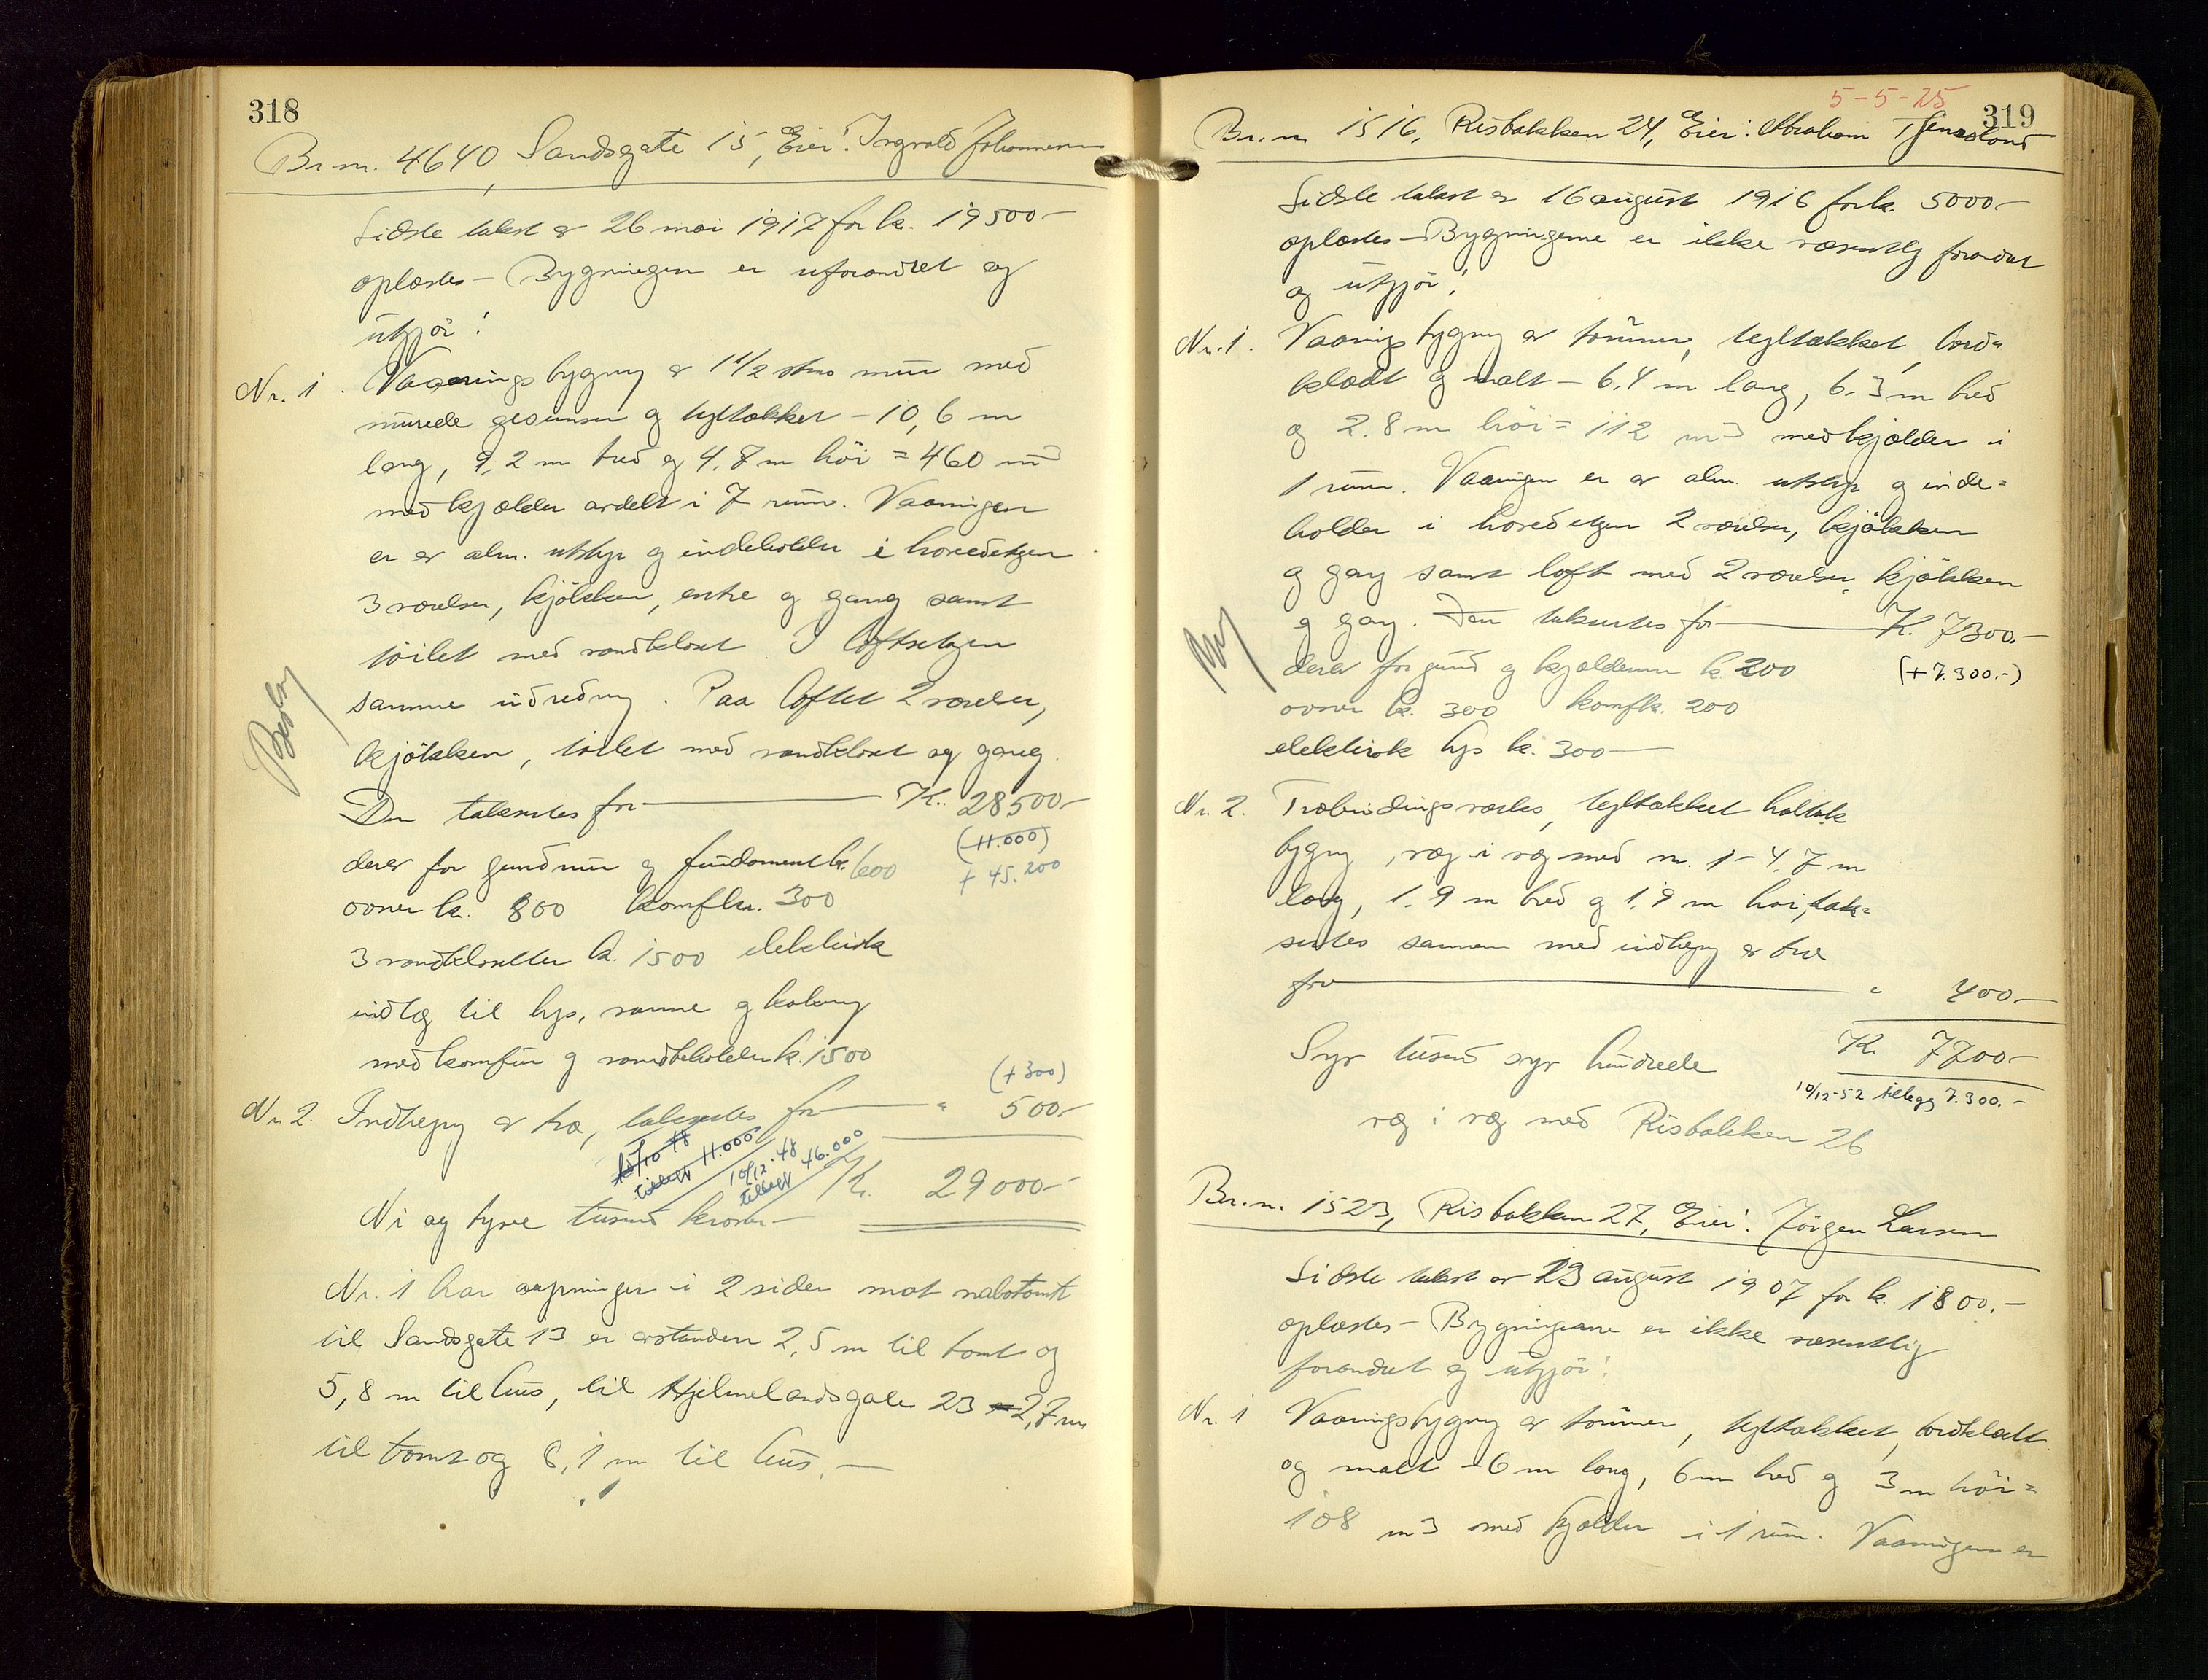 318
Br.nr. 4640, Sandsgate 15, Eier: Ingvald Johannessen
Sidste takst er 26 mai 1917 for k. 19500-
oplæstes - Bygningen er uforandret og
utgjør:
Nr. 1. Vaaningsbygning av 1 1/2 stens mur med
murede gesimser og tegltækket - 10,6 m
lang, 9,2 m bred og 4,8 m høi = 460 m3
med kjælder avdelt i 7 rum. Vaaningen
er av alm. utstyr og indeholder i hovedetagen
3 værelser, kjøkken, entre og gang samt
toilet med vandkloset I loftsetagen
samme indredning. Paa loftet 2 værelser,
kjøkken, toilet med vandkloset og gang.
Den takseres for K. 28500-
(11.000)
+ 45.200
derav for grundmur og fundament k. 600
ovner k. 800 komf.k. 300
3 vandklosetter k. 1500 elektrisk
indlæg til lys, varme og kokning
med komfur og vandbeholder k. 1500
(+300)
Nr. 2. Indhegning av træ, takseres for " 500-
tillegg 11.000
10/12-48
tillegg 46.000
K. 29000-
Ni og tyve tusend kroner-
Nr. 1 har aapninger i 2 sider mot nabotomt
til Sandsgate 13 er avstanden 2,5 m til tomt og
5,8 m til hus, til Hjelmelandsgate 23 2,7 m
til tomt og 8,1 m til hus.-
5-5-25
319
Br.nr. 1516, Risbakken 24, Eier: Abraham
Sidste takst er 16 august 1916 for k. 5000-
oplæstes - Bygningerne er ikke væsentlig forandret
og utgjør:
Nr. 1. Vaaningsbygning av tømmer, tegltækket, bord=
klædt og malt - 6,4 m lang, 6,3 m bred
og 2,8 m høi = 112 m3 med kjælder i
1 rum. Vaaningen er av alm. utstyr og inde=
holder i hovedetagen 2 værelser, kjøkken
og gang samt loft med 2 værelser, kjøkken
og gang. Den takseres for K. 7300.-
(+7.300.-)
derav for grund og kjældermur k. 200
ovner k. 300 komf.k. 200
elektrisk lys k. 300-
Nr. 2. Træbindingsværks, tegltækket halvtak
bygning, væg i væg med nr. 1 - 4,7 m
lang, 1,9 m bred og 1,9 m høi, tak=
seres sammen med indhegning av træ
for " 400-
K. 7700-
Syv tusend syv hundrede
10/12-52 tillegg 7.300.-
væg i væg med Risbakken 26
Br.nr. 1523, Risbakken 27, Eier: Jørgen Larsen
Sidste takst er 23 august 1907 for k. 1800.-
oplæstes - Bygningerne er ikke væsentlig
forandret og utgjør:
Nr. 1 Vaaningsbygning av tømmer, tegltækket, bordklædt
og malt - 6 m lang, 6 m bred og 3 m høi =
108 m3 med kjælder i 1 rum. Vaaningen er